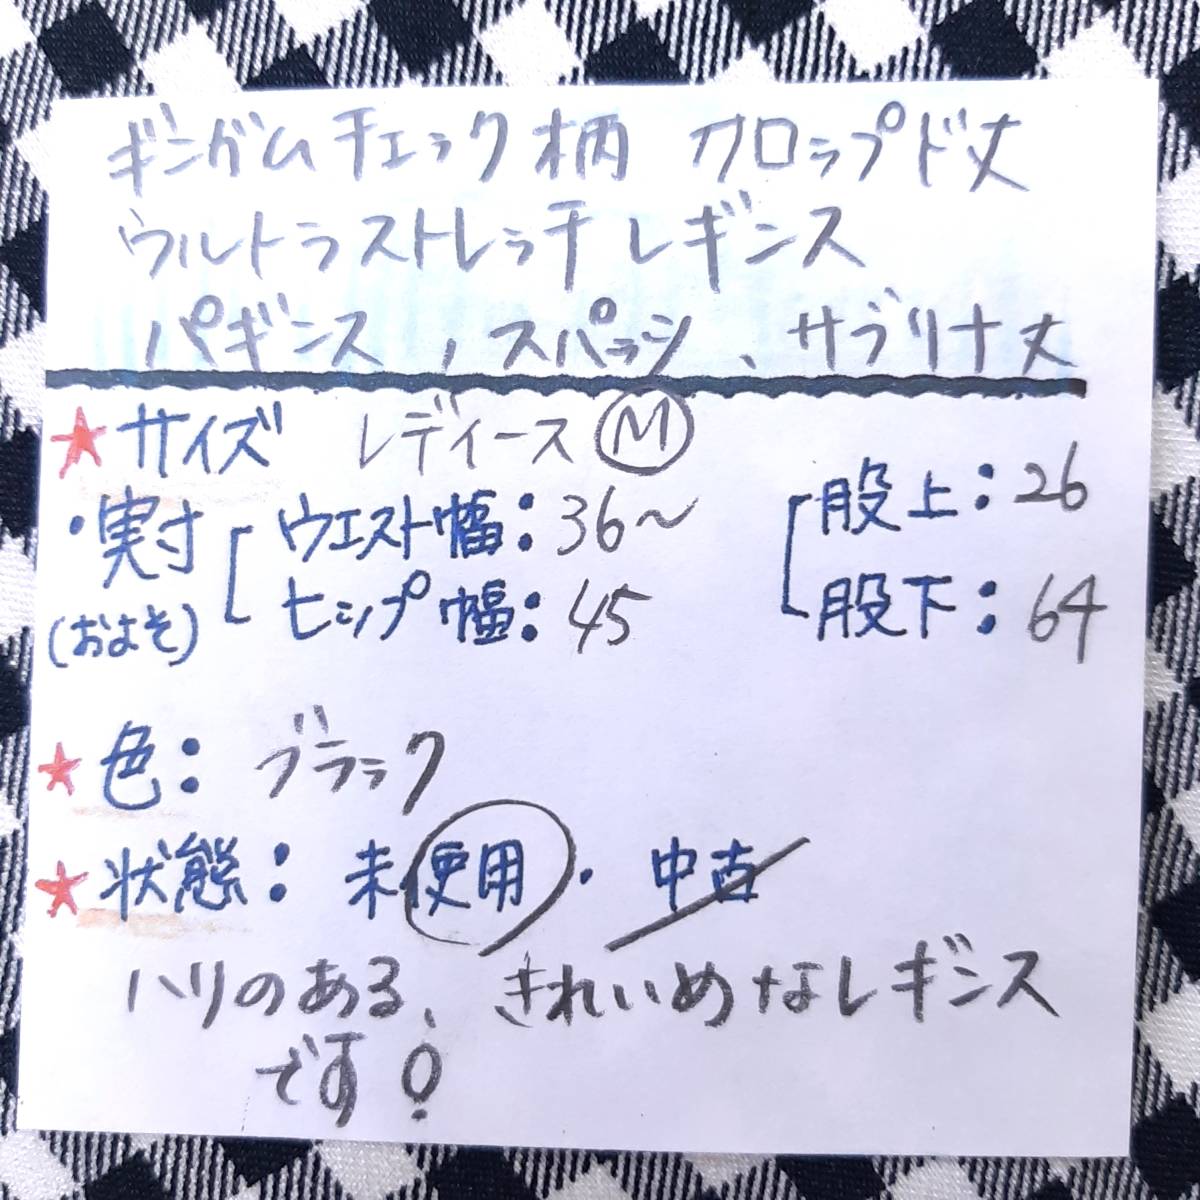 ギンガムチェック柄 クロップド丈
ウルトラストレッチレギンス
パギンス、スパッツ、サブリナ丈
★サイズ レディース Ⓜ
・実寸 ウエスト幅:36〜 股上:26
(おおよそ) ヒップ幅:45 股下:64
★色:ブラック
★状態:未使用・中古
ハリのある、きれいめなレギンス
です!